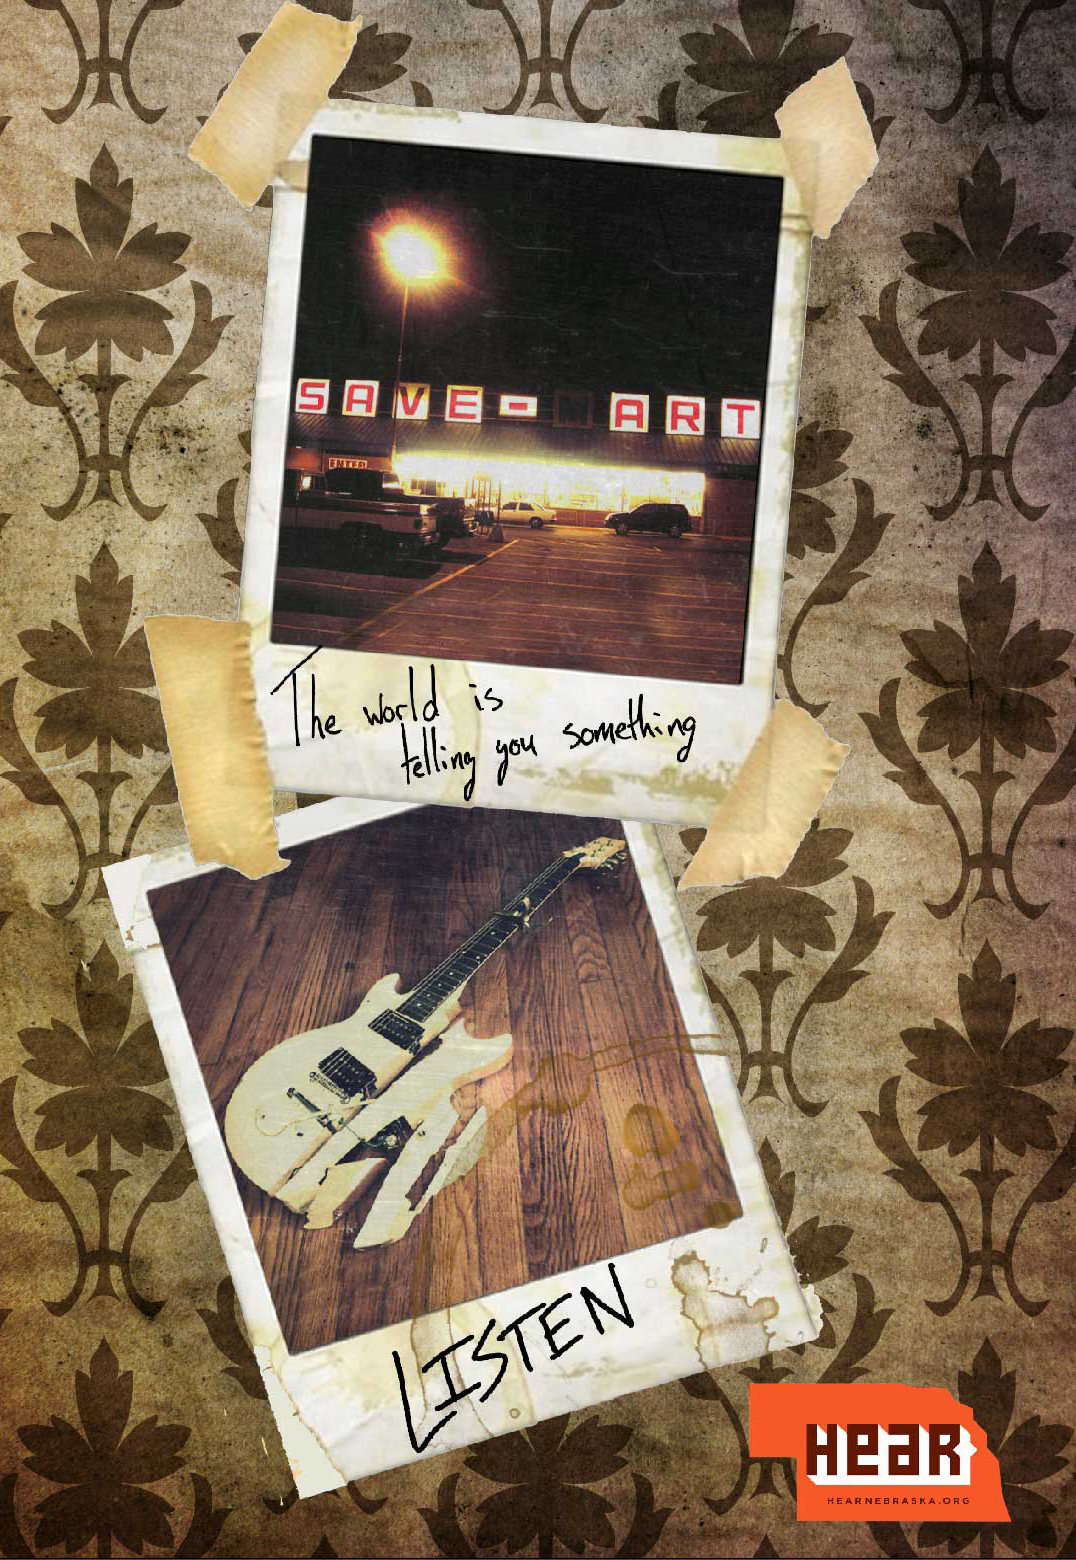 SAVE-MART
ENTER
The world is
telling you something
LISTEN
HEAR
HEARNEBRASKA.ORG